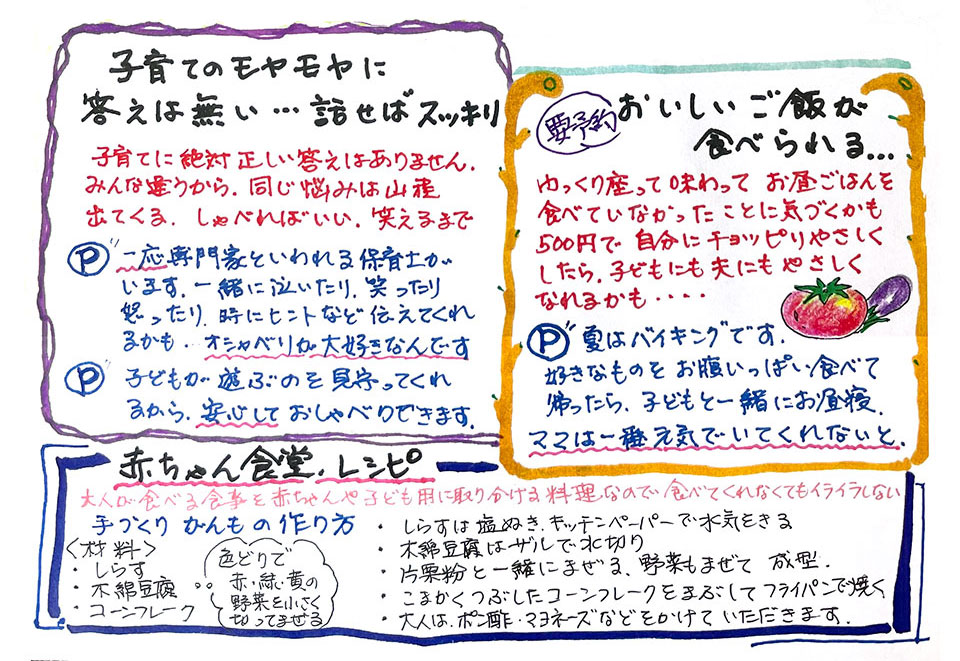 子育てのモヤモヤに
答えは無い…話せばスッキリ
子育てに絶対正しい答えはありません.
みんな違うから.同じ悩みは山程
出てくる.しゃべればいい.笑えるまで
Ⓟ"一応専門家といわれる保育士が
います.一緒に泣いたり.笑ったり
怒ったり.時にヒントなど伝えてくれ
るかも..オシャベリが大好きなんです
Ⓟ"子どもが遊ぶのを見守ってくれ
るから.安心しておしゃべりできます.
要予約
おいしいご飯が
食べられる...
ゆっくり座って味わってお昼ごはんを
食べていなかったことに気づくかも
500円で自分にチョッピリやさしく
したら.子どもにも夫にもやさしく
なれるかも・・・・
Ⓟ"夏はバイキングです.
好きなものをお腹いっぱい食べて
帰ったら.子どもと一緒にお昼寝.
ママは一番元気でいてくれないと.
赤ちゃん食堂.レシピ
大人が食べる食事を赤ちゃんや子ども用に取り分ける料理なので食べてくれなくてもイライラしない
手づくりがんもの作り方
<材料>
・しらす
・木綿豆腐
・コーンフレーク
色どりで
赤・緑・黄の
野菜を小さく
切ってまぜる
・しらすは塩ぬき.キッチンペーパーで水気をきる
・木綿豆腐はザルで水切り
・片栗粉と一緒にまぜる、野菜もまぜて 成型.
・こまかくつぶしたコーンフレークをまぶしてフライパンで焼く
・大人は.ポン酢・マヨネーズなどをかけていただきます.